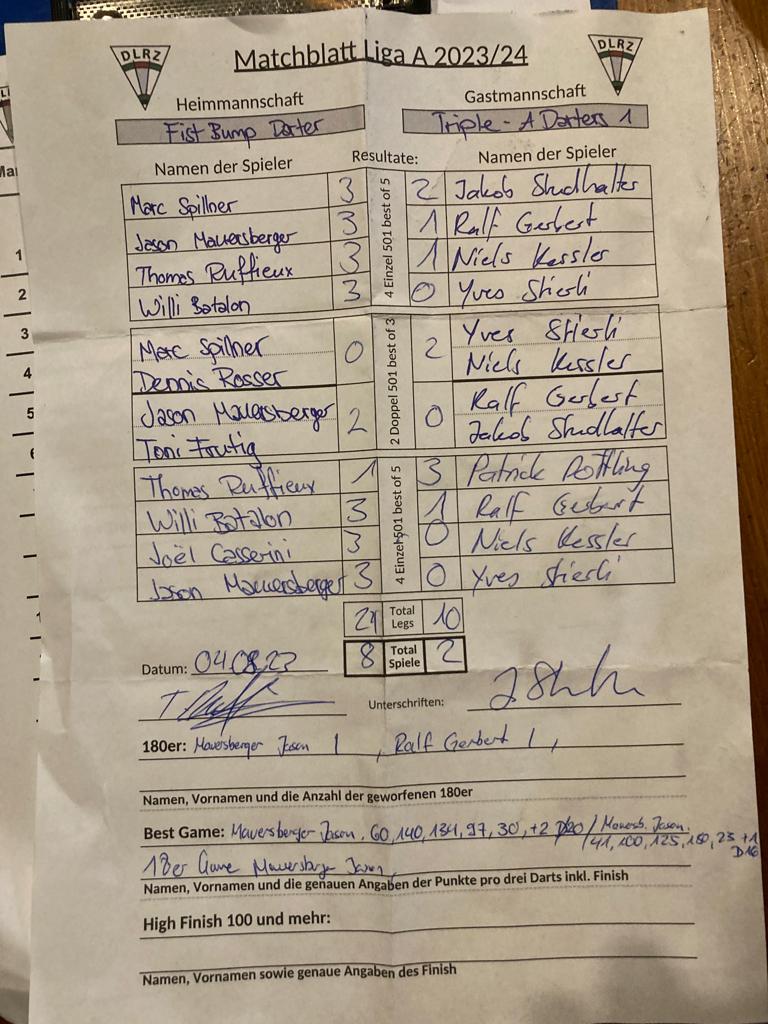 DLRZ
Matchblatt Liga A 2023/24
DLRZ
Heimmannschaft
Gastmannschaft
Fist Bump Darter
Triple-A Darters 1
Namen der Spieler
Resultate:
Namen der Spieler
4 Einzel 501 best of 5
Marc Spillner 3 2 Jakob Studhalter
Jason Mauersberger 3 1 Ralf Gerbert
Thomas Ruffieux 3 1 Niels Kessler
Willi Batalon 3 0 Yves Stierli
2 Doppel 501 best of 3
Marc Spillner 0 2 Yves Stierli
Dennis Rosser Niels Kessler
Jason Mauersberger 2 0 Ralf Gerbert
Toni Frutig Jakob Studhalter
4 Einzel 501 best of 5
Thomas Ruffieux 1 3 Patrick
Willi Batalon 3 1 Ralf Gerbert
Joël Casserini 3 0 Niels Kessler
Jason Mauersberger 3 0 Yves Stierli
Total Legs 10
8 Total Spiele 2
Datum: 04.08.23
Unterschriften:
180er: Mauersberger Jason 1, Ralf Gerbert 1,
Namen, Vornamen und die Anzahl der geworfenen 180er
Best Game: Mauersberger Jason. 60, 140, 134, 97, 30, +2 D20 / Mauersb. Jason.
41, 100, 125, 180, 23 +1
D16
18er Game Mauersberger Jason,
Namen, Vornamen und die genauen Angaben der Punkte pro drei Darts inkl. Finish
High Finish 100 und mehr:
Namen, Vornamen sowie genaue Angaben des Finish
1
2
3
4
5